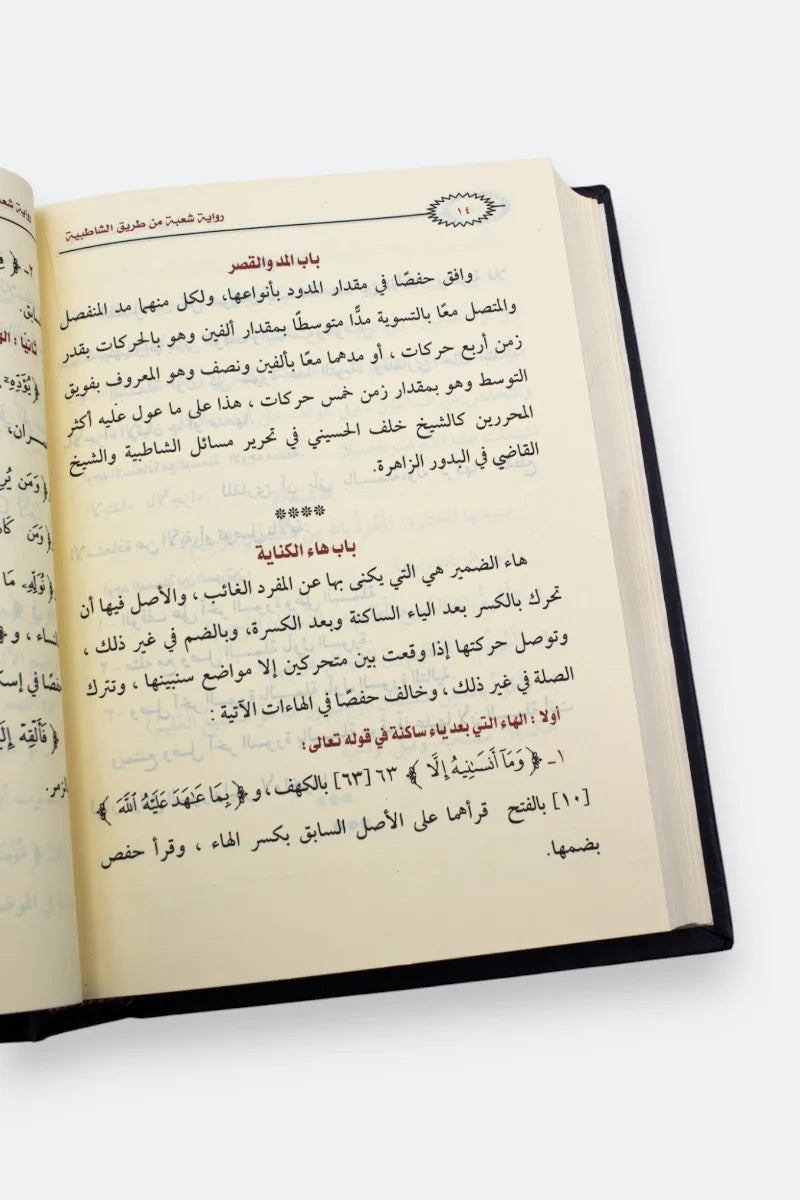 ١٤
رواية شعبة من طريق الشاطبية
باب المد والقصر
وافق حفصًا في مقدار المدود بأنواعها، ولكل منهما مد المنفصل
والمتصل معًا بالتسوية مدًّا متوسطًا بمقدار ألفين وهو بالحركات بقدر
زمن أربع حركات ، أو مدهما معًا بألفين ونصف وهو المعروف بفويق
التوسط وهو بمقدار زمن خمس حركات ، هذا على ما عول عليه أكثر
المحررين كالشيخ خلف الحسيني في تحرير مسائل الشاطبية والشيخ
القاضي في البدور الزاهرة.
****
باب هاء الكناية
هاء الضمير هي التي يكنى بها عن المفرد الغائب ، والأصل فيها أن
تحرك بالكسر بعد الياء الساكنة وبعد الكسرة، وبالضم في غير ذلك ،
وتوصل حركتها إذا وقعت بين متحركين إلا مواضع سنبينها ، وتترك
الصلة في غير ذلك ، وخالف حفصًا في الهاءات الآتية :
أولا : الهاء التي بعد ياء ساكنة في قوله تعالى:
١ـ ﴿ وَمَآ أَنسَىٰنِيهُ إِلَّا ﴾ ٦٣ [٦٣] بالكهف، و ﴿ بِمَا عَـٰهَدَ عَلَيْهُ ٱللَّهَ ﴾
[١٠] بالفتح قرأهما على الأصل السابق بكسر الهاء ، وقرأ حفص
بضمها.
٢ـ
ثانيًا :
وَمَن
نُوَلِّهِۦ مَا
النساء ، و
فَأَلْقِهْ